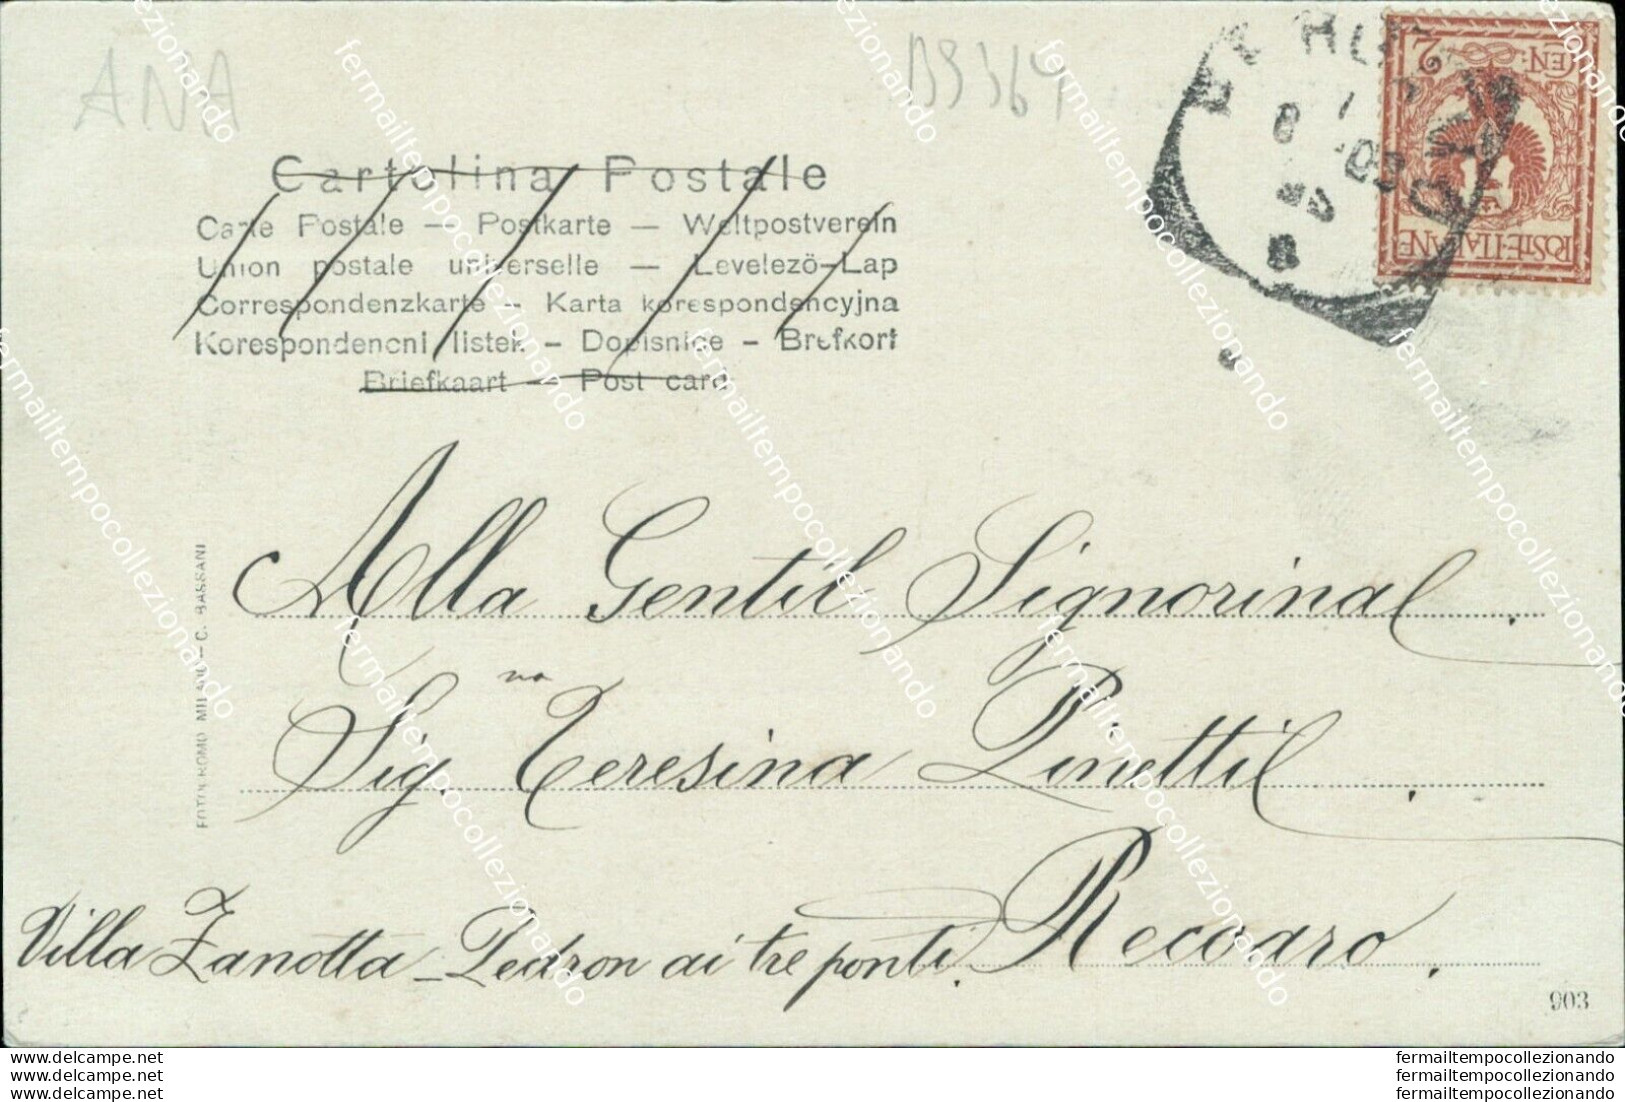 ANA
B9364
Cartolina Postale
Carte Postale – Postkarte – Weltpostverein
Union postale universelle – Levelezö-Lap
Correspondenzkarte – Karta korespondencyjna
Korespondencni listek – Dopisnice – Brefkort
Briefkaart – Post card
CEN: 2
POSTE ITALIANE
FOTOCROMO MILANO – C. BASSANI
Alla Gentil Signorina
Sig.na Teresina Pinetti
Villa Zanotta – Pedron ai tre ponti. Recoaro.
903
www.delcampe.net
www.delcampe.net
www.delcampe.net
fermailtempocollezionando
fermailtempocollezionando
fermailtempocollezionando